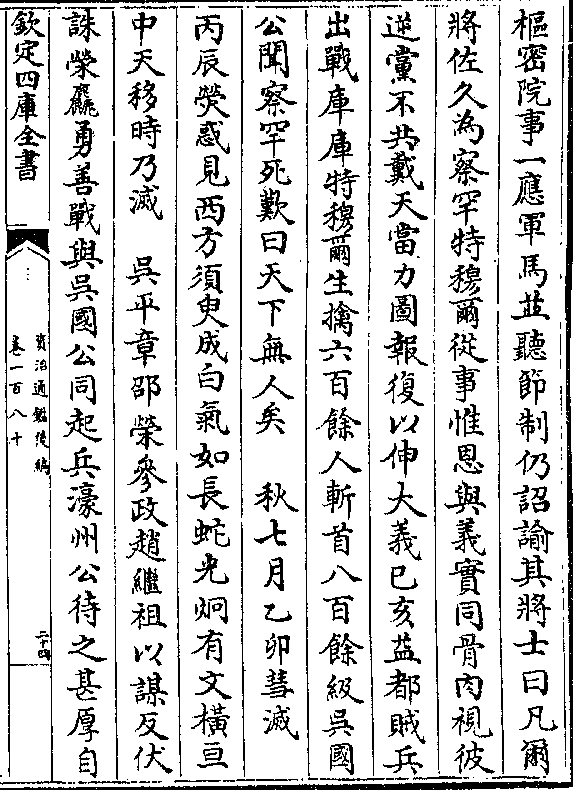 樞密院事一應軍馬並聽節制仍詔諭其將士曰凡爾
將佐久為察罕特穆爾從事惟恩與義實同骨肉視彼
逆黨不共戴天當力圖報復以伸大義己亥益都賊兵
出戰庫庫特穆爾生擒六百餘人斬首八百餘級吳國
公聞察罕死歎曰天下無人矣　秋七月乙卯彗滅
丙辰熒惑見西方須臾成白氣如長蛇光炯有文橫亘
中天移時乃滅　吳平章邵榮參政趙繼祖以謀反伏
誅榮麤勇善戰與吳國公同起兵濠州公待之甚厚自
欽定四庫全書
資治通鑑後編
卷一百八十
二十四